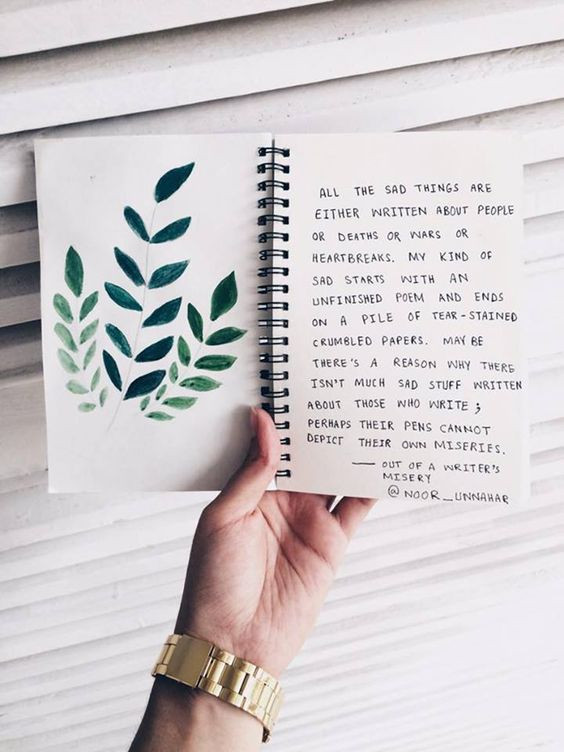 ALL THE SAD THINGS ARE
EITHER WRITTEN ABOUT PEOPLE
OR DEATHS OR WARS OR
HEARTBREAKS. MY KIND OF
SAD STARTS WITH AN
UNFINISHED POEM AND ENDS
ON A PILE OF TEAR-STAINED
CRUMBLED PAPERS. MAY BE
THERE'S A REASON WHY THERE
ISN'T MUCH SAD STUFF WRITTEN
ABOUT THOSE WHO WRITE;
PERHAPS THEIR PENS CANNOT
DEPICT THEIR OWN MISERIES.
— OUT OF A WRITER'S
MISERY
@NOOR_UNNAHAR